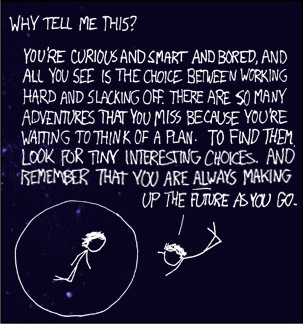 WHY TELL ME THIS?
YOU'RE CURIOUS AND SMART AND BORED, AND
ALL YOU SEE IS THE CHOICE BETWEEN WORKING
HARD AND SLACKING OFF. THERE ARE SO MANY
ADVENTURES THAT YOU MISS BECAUSE YOU'RE
WAITING TO THINK OF A PLAN. TO FIND THEM,
LOOK FOR TINY INTERESTING CHOICES. AND
REMEMBER THAT YOU ARE ALWAYS MAKING
UP THE FUTURE AS YOU GO.